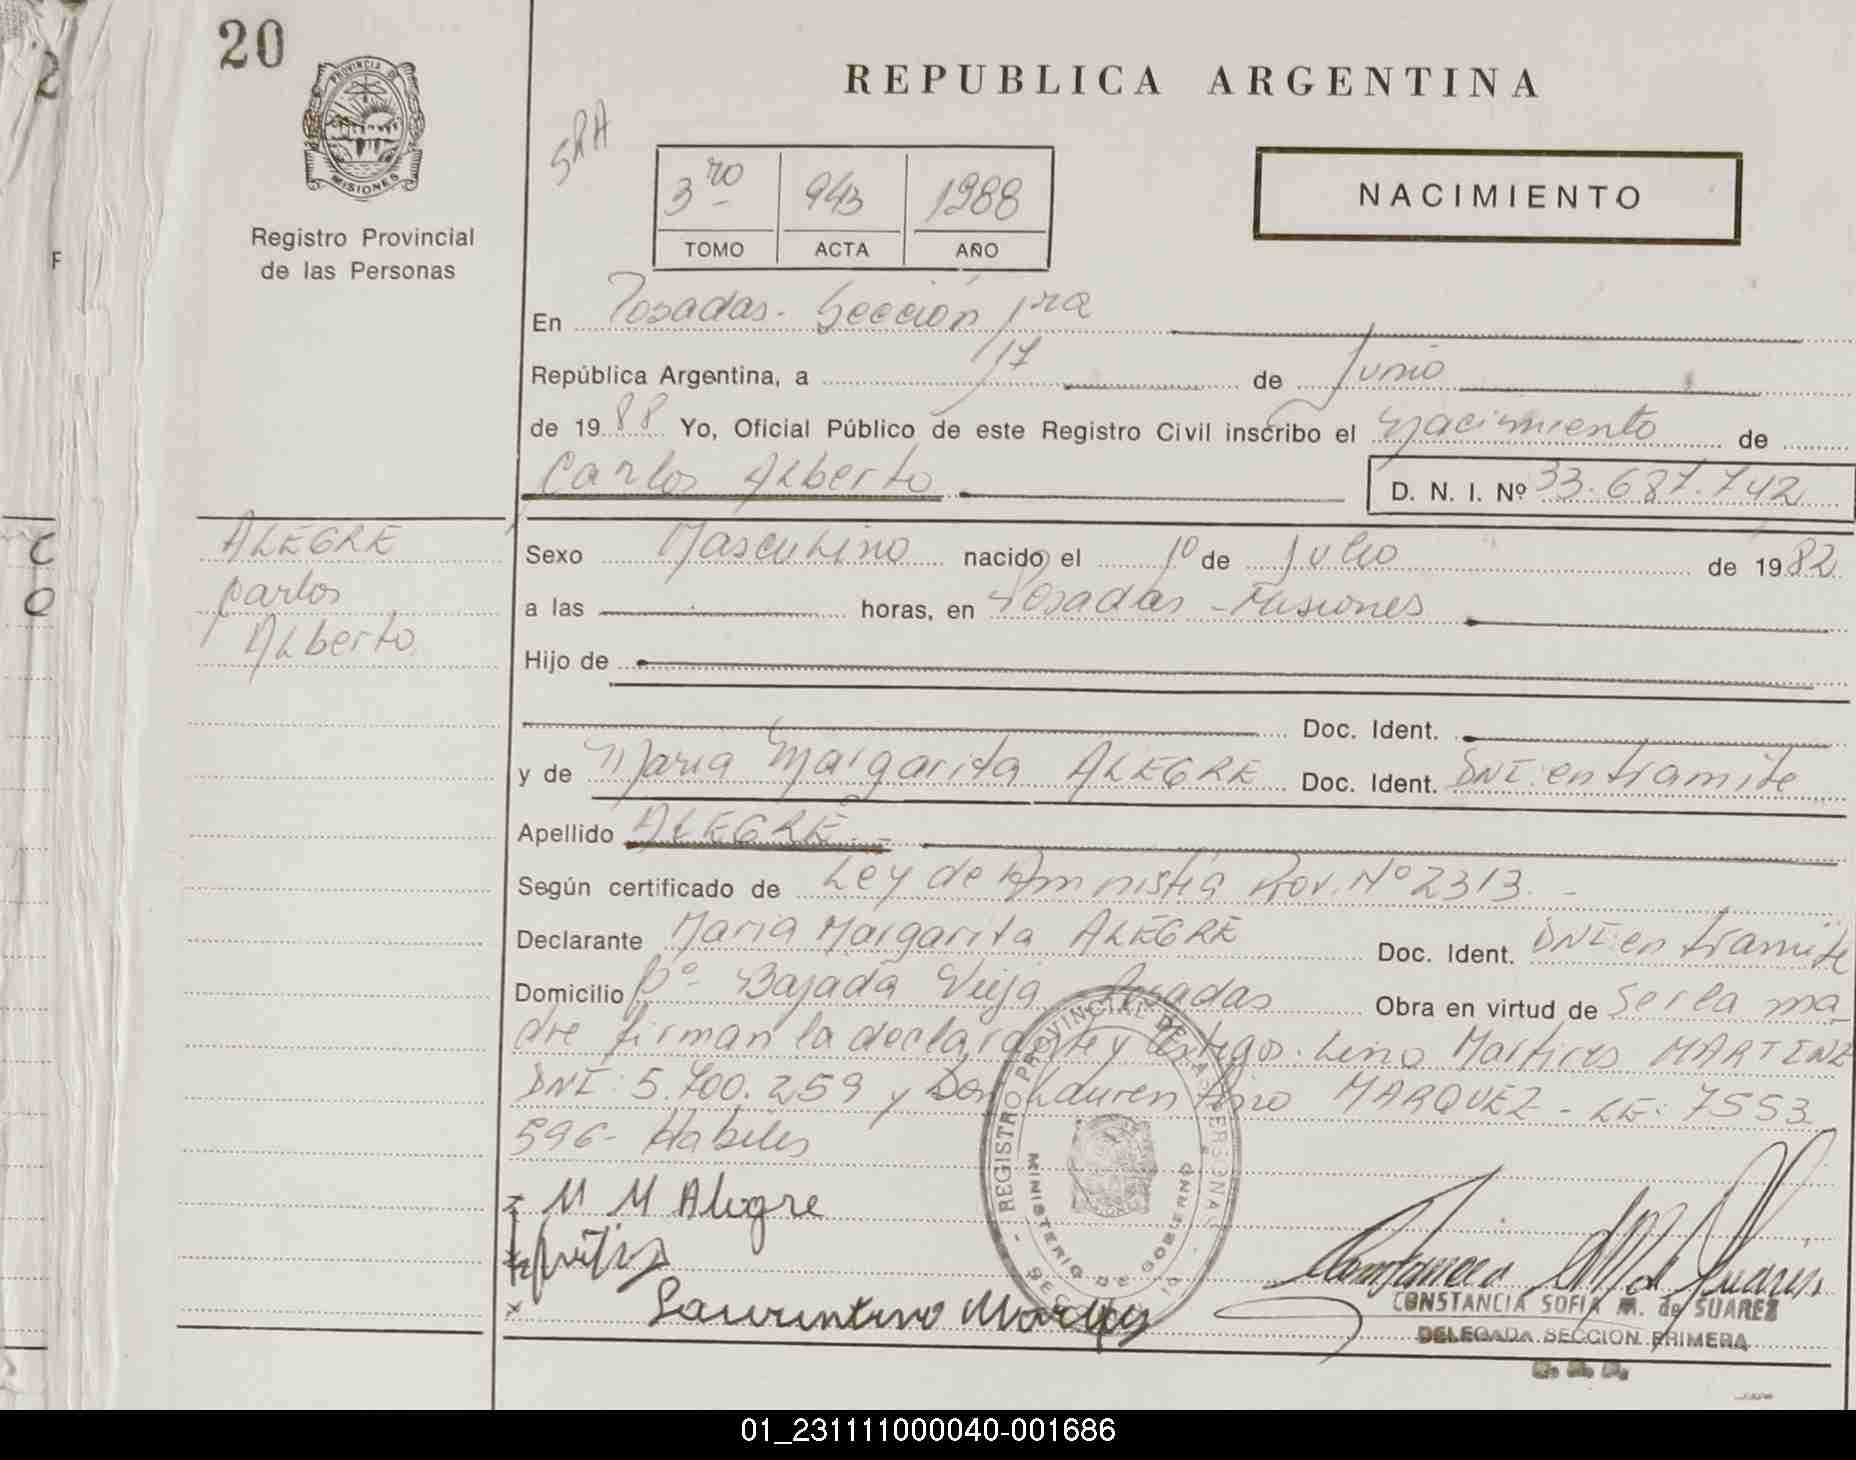 20
PROVINCIA DE
MISIONES
Registro Provincial
de las Personas
REPUBLICA ARGENTINA
SRA
3ro 943 1988
TOMO ACTA AÑO
NACIMIENTO
En Posadas - Sección 1ra
República Argentina, a 17 de Junio
de 1988 Yo, Oficial Público de este Registro Civil inscribo el Nacimiento de
Carlos Alberto D. N. I. Nº 33.687.742
ALEGRE
Carlos
Alberto
Sexo Masculino nacido el 1º de Julio de 1982
a las horas, en Posadas - Misiones
Hijo de
Doc. Ident.
y de Maria Margarita ALEGRE Doc. Ident. DNI: en tramite
Apellido ALEGRE.-
Según certificado de Ley de Amnistia Prov. Nº 2313.-
Declarante Maria Margarita ALEGRE Doc. Ident. DNI: en tramite
Domicilio Bº- Bajada Vieja Posadas Obra en virtud de ser la ma-
dre firman la declarante y testigos: Lino Martires MARTINEZ
DNI: 5.700.259 y Don Laurentino MARQUEZ - LE: 7553
596- Habiles
M M Alegre
Laurentino Marquez
REGISTRO PROVINCIAL DE LAS PERSONAS
MINISTERIO DE GOBIERNO
CONSTANCIA SOFIA M. de SUAREZ
DELEGADA SECCION PRIMERA
01_231111000040-001686